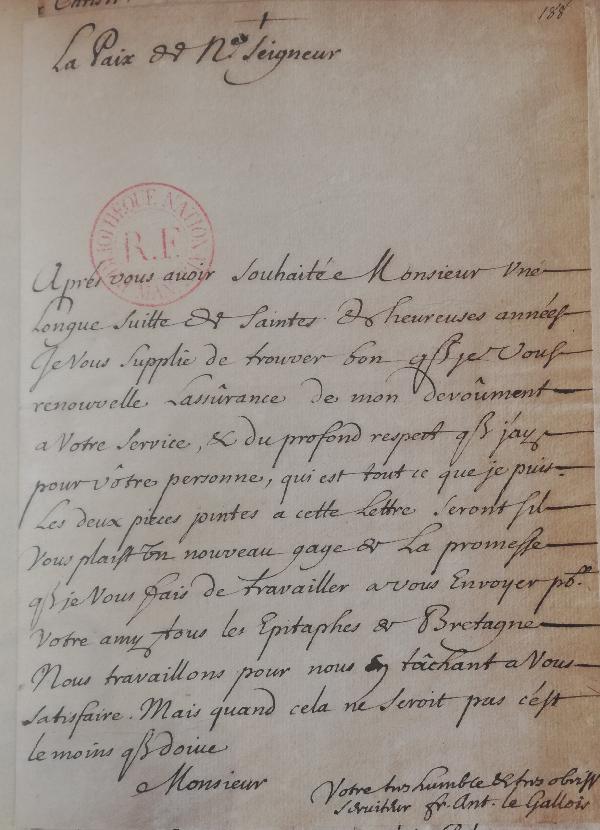 188
La Paix de Nre Seigneur
BIBLIOTHEQUE NATIONALE
R.F.
MAN
Aprés vous avoir souhaitée Monsieur une
longue suitte de saintes & heureuses années
Je vous supplie de trouver bon que je vous
renouvelle Lassûrance de mon devoûment
a votre service, & du profond respect que j'ay
pour vôtre personne, qui est tout ce que je puis.
Les deux pieces jointes a cette Lettre seront sil
vous plaist un nouveau gage de La promesse
que je vous fais de travailler a vous Envoyer pour
votre amy tous les Epitaphes de Bretagne
Nous travaillons pour nous en tâchant a vous
satisfaire. Mais quand cela ne seroit pas c'est
le moins que doive
Monsieur
Votre tres humble & tres obeiss
serviteur fr. Ant. le Gallois